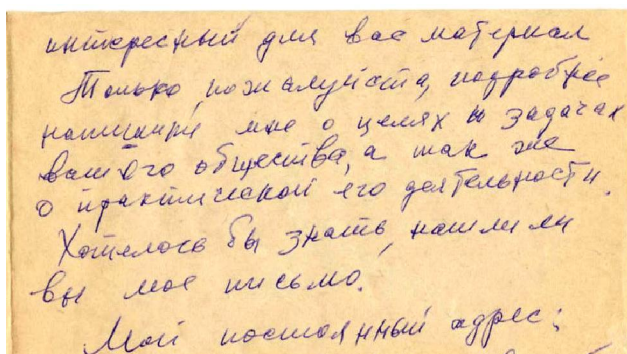 интересный для вас материал
Только, пожалуйста, подробнее
напишите мне о целях и задачах
вашего общества, а так же
о практической его деятельности.
Хотелось бы знать, нашли ли
вы мое письмо.
Мой постоянный адрес: